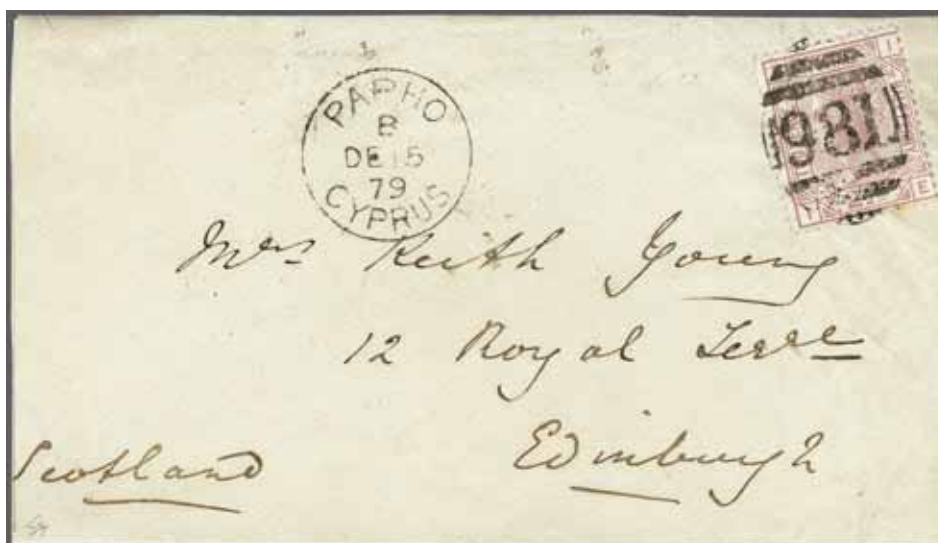 PAPHO
B
DE 15
79
CYPRUS
I
981
I E
Mrs Keith Young
12 Royal Terre
Edinburgh
Scotland